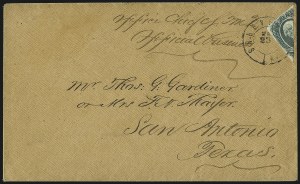 Office Chief of
Official Business
Mr. Thos. G. Gardiner
or Mrs F. N. Mayfer.
San Antonio
Texas.